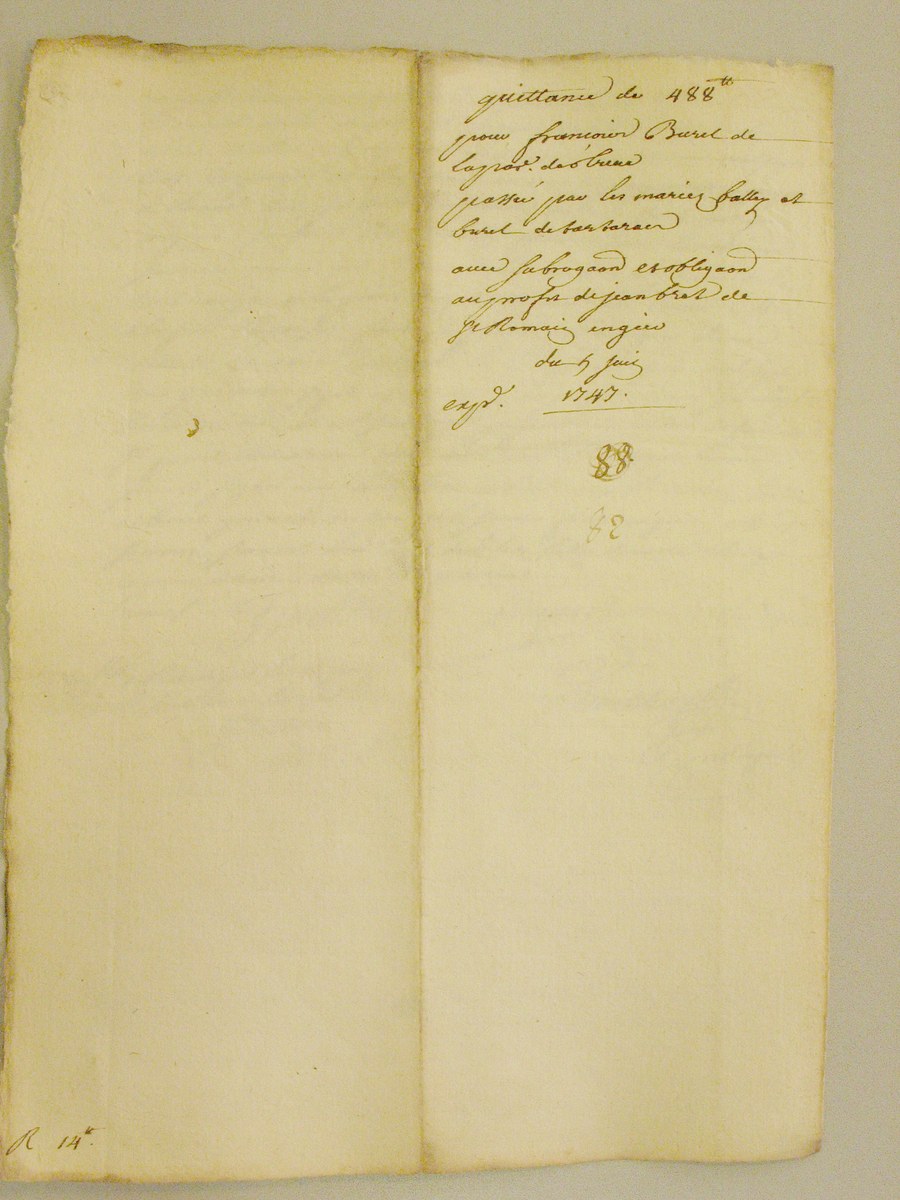 quittance de 488ᵗᵗ
pour françois Buret de
la par. de
passée par les mariez fallet et
buret de tartaras
avec subrogaon et obligaon
au profit de jean bret de
St Romain en gier
du 5 juin
1747.
expd.
88.
R 14ᵗᵗ.